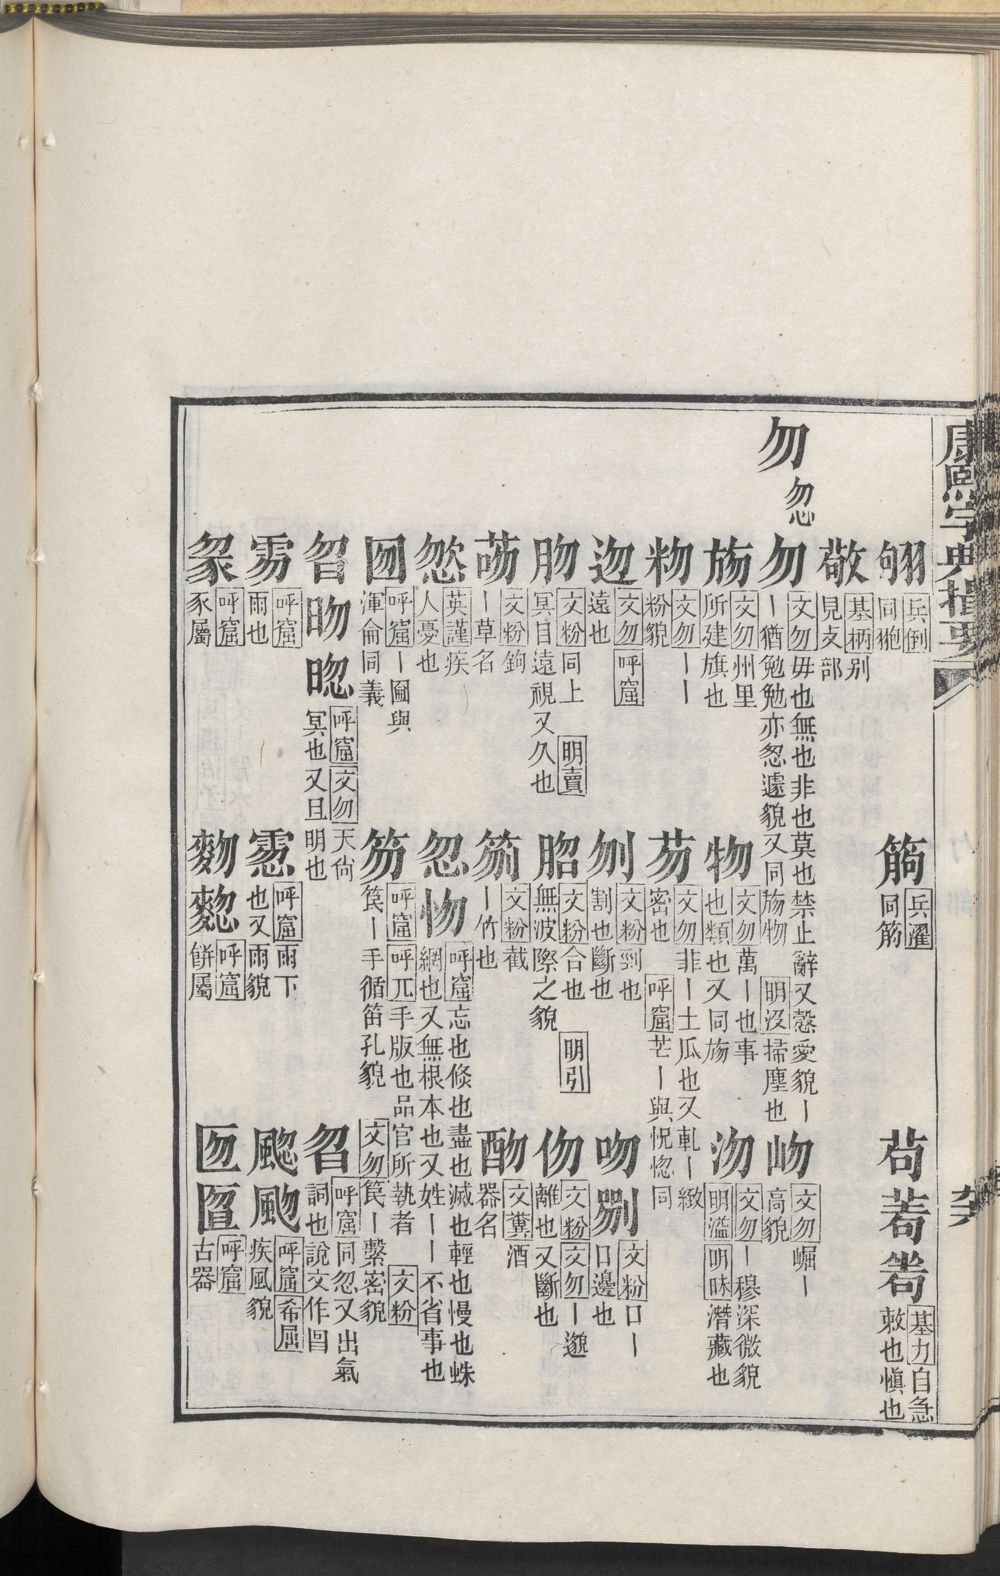 康熙字典撮要
勿 忽
𦐂 兵倒 同𦏻
筋 兵濯 同筋
茍 基力 自急敕也愼也
敬 基柄 別見攴部
勿 文勿 毋也無也非也莫也禁止辭又慤愛貌丨丨猶勉勉亦怱遽貌又同𣃦物 明沒 掃塵也
岉 文勿 崛丨高貌
𣃦 文勿 州里所建旗也
物 文勿 萬丨也事也類也又同𣃦
沕 文勿 丨穆深微貌 明溢 明昧 潛藏也
粅 文勿 丨丨粉貌
芴 文勿 菲丨土瓜也又軋丨緻密也 呼窟 芒丨與怳惚同
迿 文勿 呼窟 遠也
刎 文粉 剄也割也斷也
吻 文粉 口丨口邊也
肳 文粉 同上 明賣 冥目遠視又久也
䐇 文粉 合也無波際之貌 明引
伆 文粉 文勿 丨邈離也又斷也
文粉 鉤丨草名
文粉 截丨竹也
文糞 酒器名
英謹 疾人憂也
忽 㧾 呼窟 忘也倐也盡也滅也輕也慢也蛛網也又無根本也又姓丨丨不省事也
囫 呼窟 丨圇與渾侖同義
笏 呼窟 呼兀 手版也品官所執者笢丨手循笛孔貌 文勿 笢丨繫密貌 文粉
曶 昒 㫚 呼窟 文勿 天尙冥也又且明也
㫚 呼窟 同忽又出氣詞也說文作曶
雺 呼窟 雨也
呼窟 雨下也又雨貌
颮 呼窟 希屈 疾風貌
呼窟 豕屬
呼窟 餅屬
匢 匫 呼窟 古器